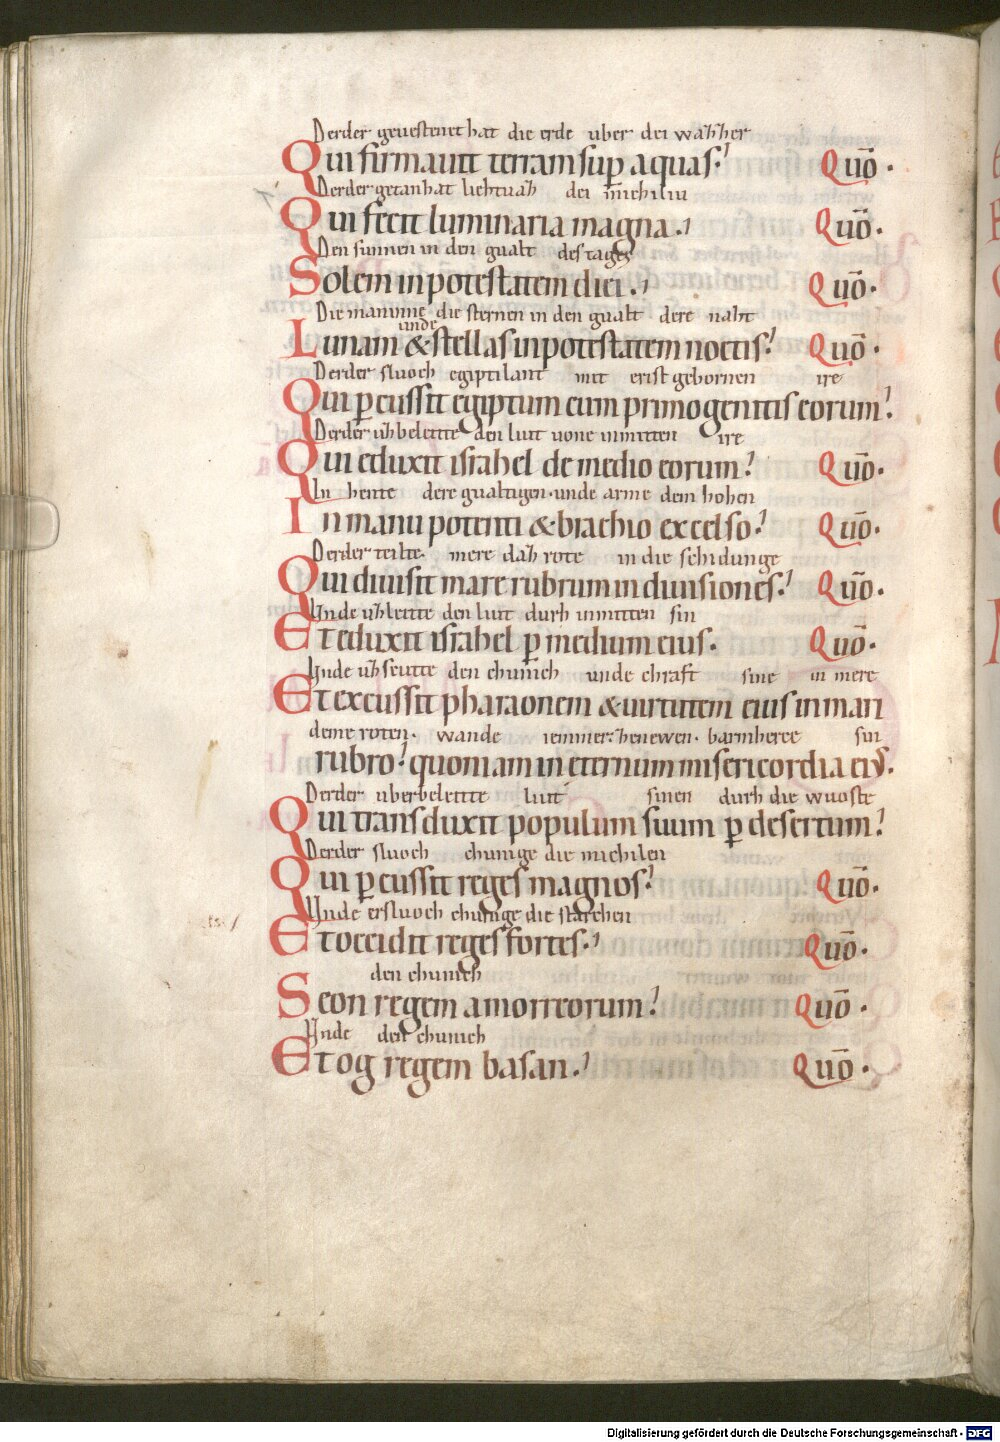 Derder geuestenet hat die erde uber dei waʒʒer
Qui firmauit terram sup̄ aquas. Quō.
Derder getan hat liehtuaʒ dei michiliu
Qui fecit luminaria magna. Quō.
Den sunnen in den gualt des tages
Solem in potestatem diei. Quō.
Die maninne die sternen in den gualt dere naht
unde
Lunam & stellas in potestatem noctis. Quō.
Derder sluoch egiptilant mit erist gebornen ire
Qui p̱cussit egiptum cum primogenitis eorum.
Derder uʒbeleitte den liut uone inmitten ire
Qui eduxit israhel de medio eorum. Quō.
In hente dere gualtigen. unde arme dem hohen
In manu potenti & brachio excelso. Quō.
Derder teilte. mere daʒ rote in die schidunge
Qui diuisit mare rubrum in diuisiones. Quō.
Unde uʒleitte den liut durh inmitten sin
Et eduxit israhel p̱ medium eius. Quō.
Unde uʒscutte den chunich unde chraft sine in mere
Et excussit pharaonem & uirtutem eius in mari
deme roten. wande iemmer. barmherce sin
rubro. quoniam in eternum misericordia ei᾽.
Derder uberbeleitte liut sinen durh die wuoste
Qui transduxit populum suum p̱ desertum.
Derder sluoch chunige die michilen
Qui p̱cussit reges magnos. Quō.
Unde ersluoch chunige die starchen
Et occidit reges fortes. Quō.
den chunich
Seon regem amorreorum. Quō.
Unde den chunich
Et og regem basan. Quō.
Digitalisierung gefördert durch die Deutsche Forschungsgemeinschaft - DFG